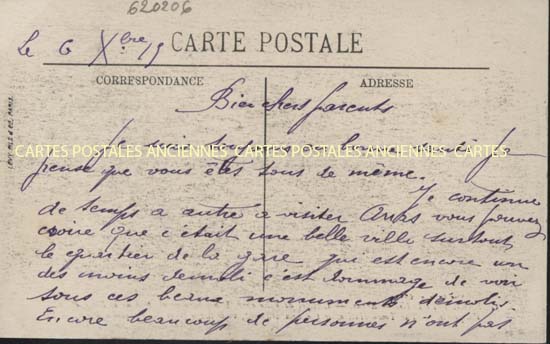 620206
Le 6 Xbre 19
CARTE POSTALE
CORRESPONDANCE
ADRESSE
Bien chers parents
Je suis toujours en bonne santé je
CARTES POSTALES ANCIENNES CARTES POSTALES ANCIENNES CARTES
pense que vous êtes tous de meme.
Je continue
de temps a autre a visiter Arras vous pouvez
croire que c'était une belle ville surtout
le quartier de la gare qui est encore un
des moins démoli c'est dommage de voir
tous ces beaux monuments démolis.
Encore beaucoup de personnes n'ont pas